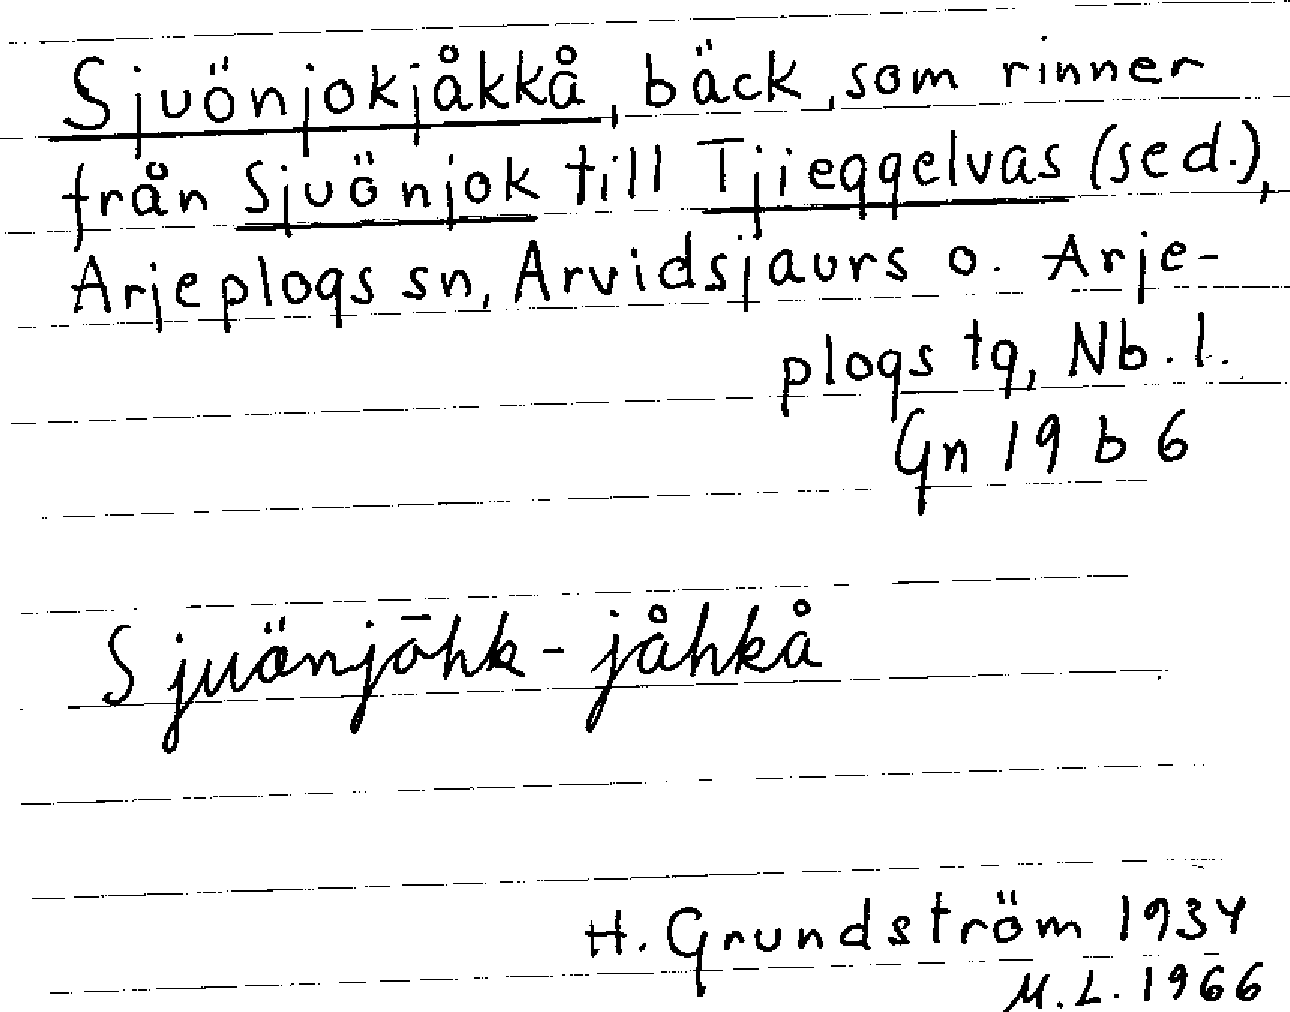 Sjuönjokjåkkå, bäck, som rinner
från Sjuönjok till Tjieggelvas (sed.),
Arjeplogs sn, Arvidsjaurs o. Arje-
plogs tg, Nb. l.
Gn 19 b 6
Sjuönjōhk-jåhkå
H. Grundström 1934
M.L. 1966